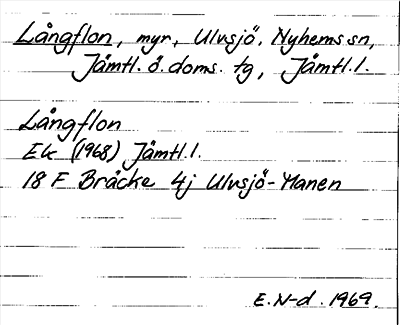 Långflon, myr, Ulvsjö, Nyhems sn,
Jämtl. ö. doms. tg, Jämtl.l.
Långflon
Ek (1968) Jämtl.l.
18 F Bräcke 4j Ulvsjö-Manen
E.N-d. 1969.